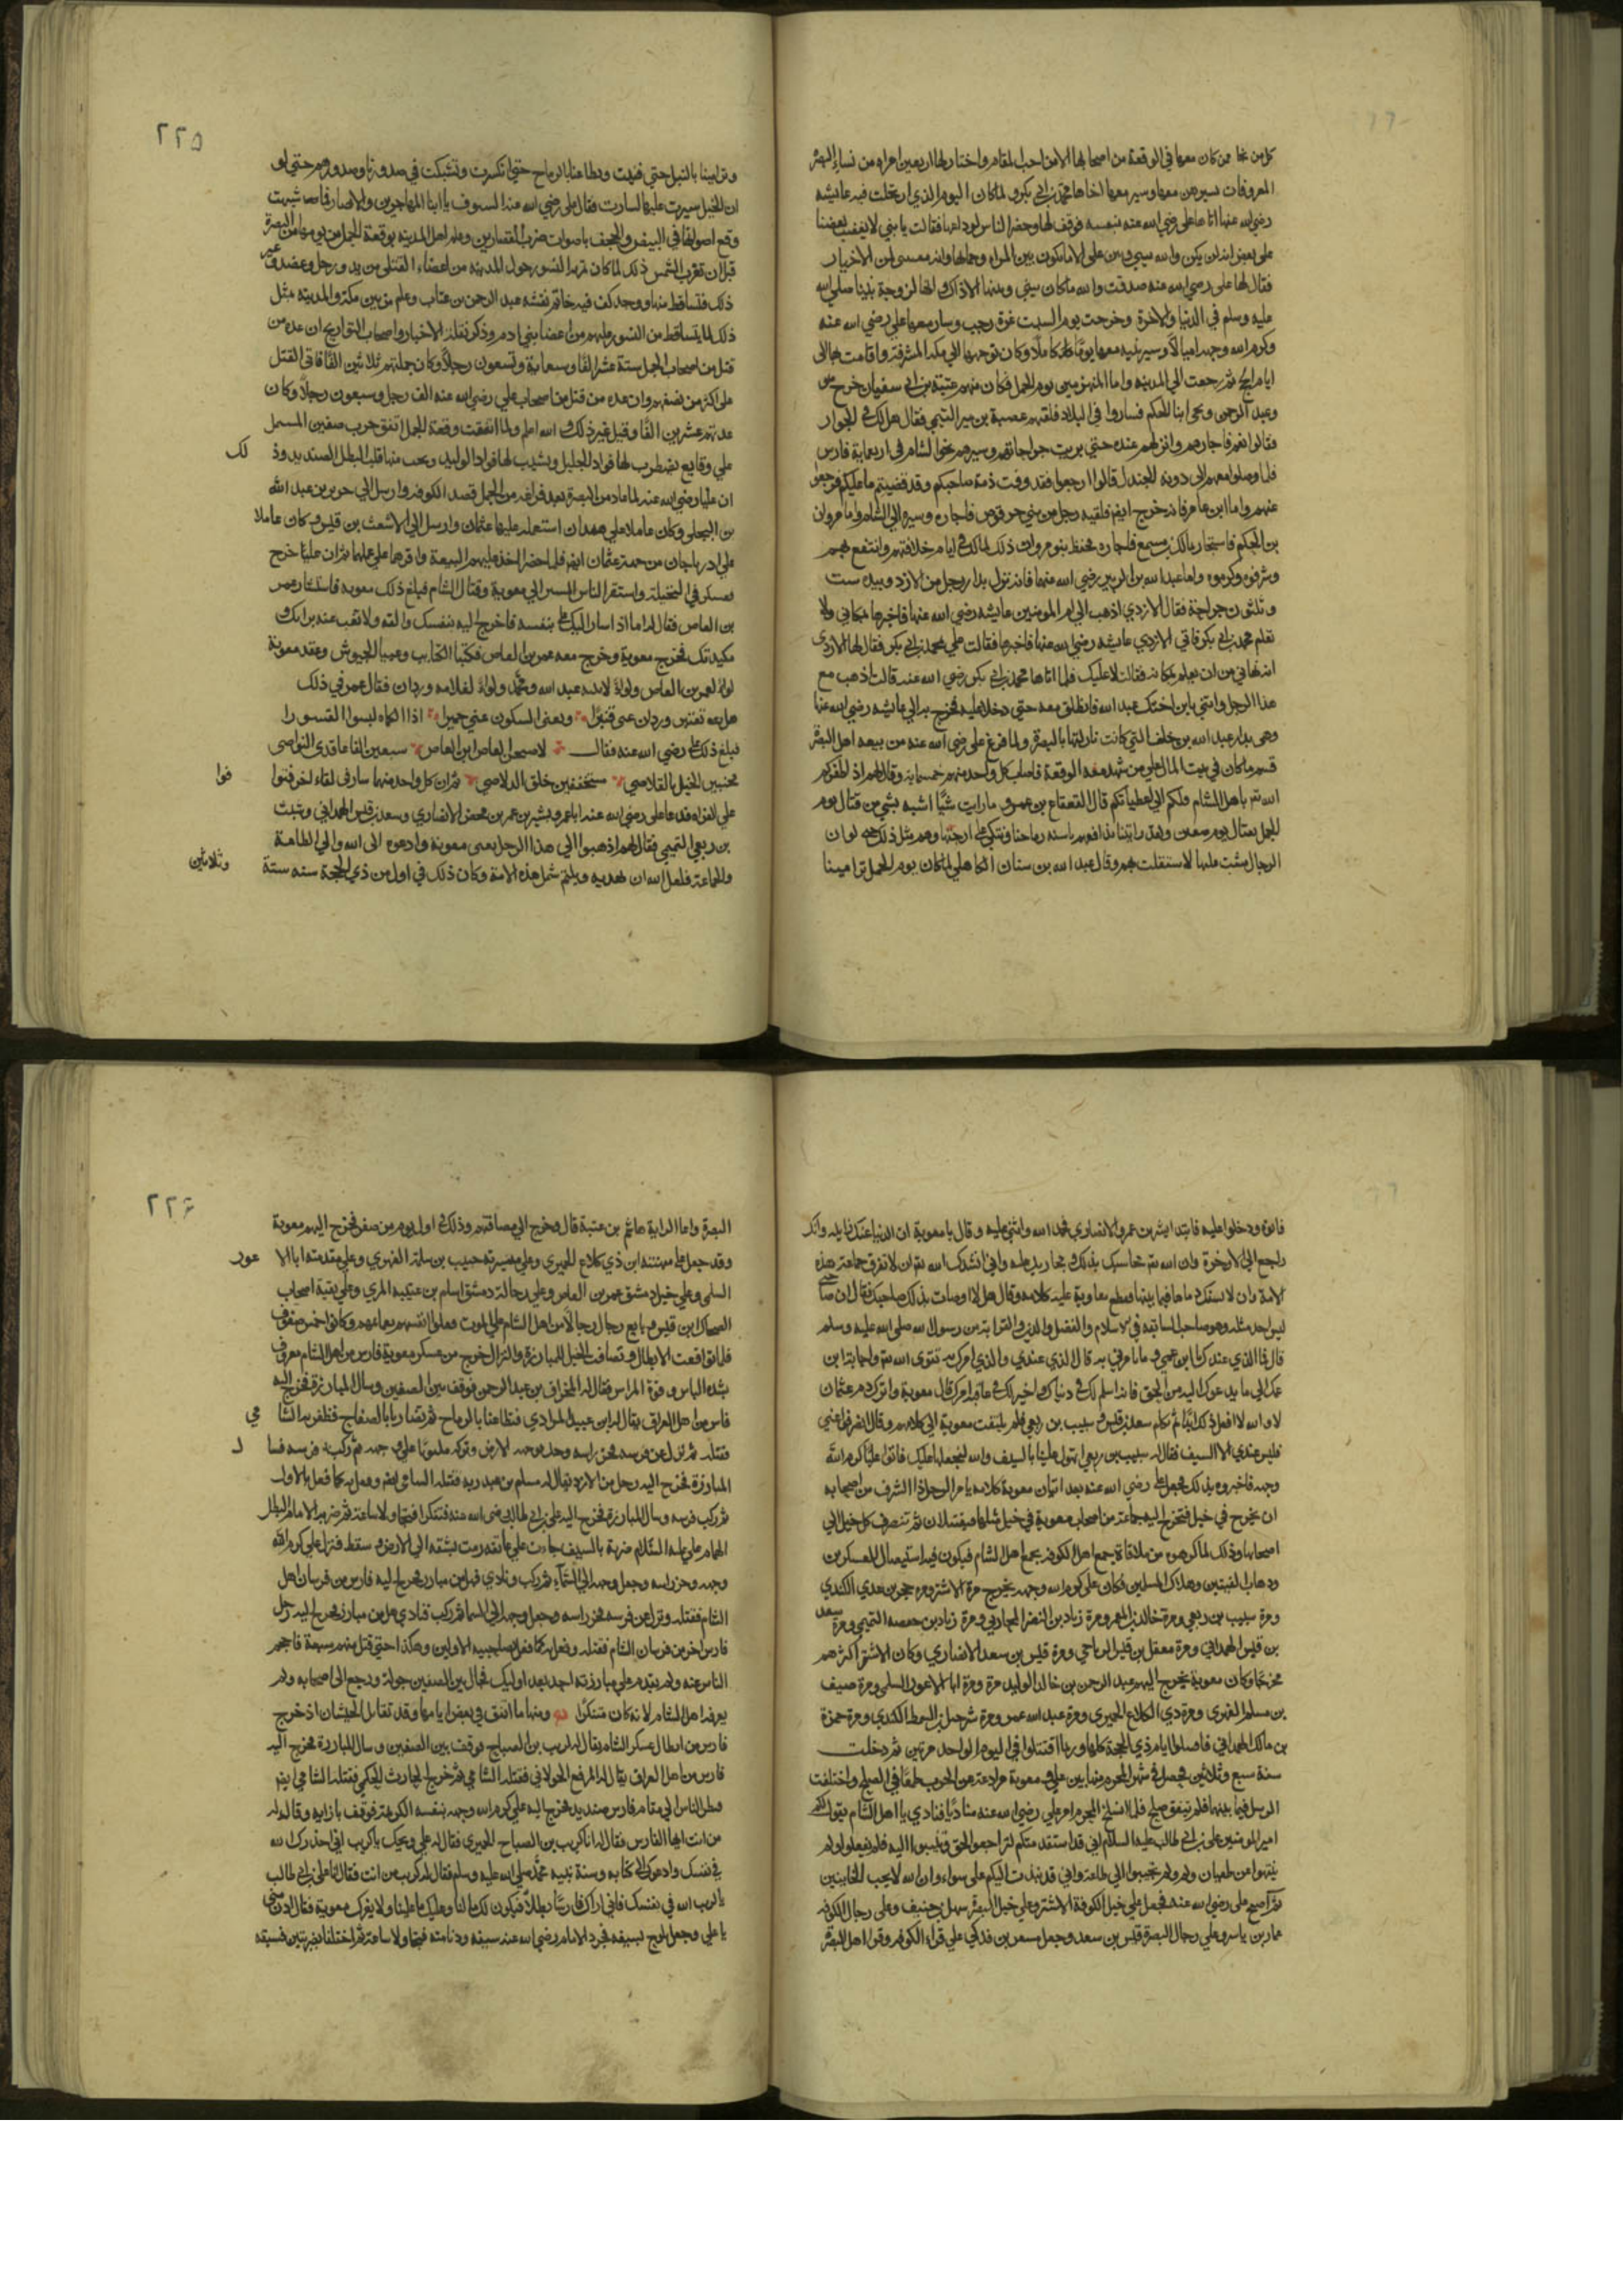 كل من نجا ممن كان معها في الوقعة من اصحابها الا من احب المقام واختار لها اربعين امراه من نساء البصرة
المعروفات تسيرهن معها وسير معها اخاها محمد بن ابي بكر ولما كان اليوم الذي ارتحلت فيه عايشه
رضي الله عنها اتاها علي رضي الله عنه بنفسه فوقف لها وحضر الناس لوداعها فقالت يا بني لا يغضب بعضنا
على بعض انه لم يكن والله بيني وبين علي الا ما يكون بين المراه وحماها وانه لمن الاخيار
فقال لها علي رضي الله عنه صدقت والله ما كان بيني وبينها الا ذاك وانها لزوجة نبينا صلى الله
عليه وسلم في الدنيا والاخرة وخرجت يوم السبت غرة رجب وسار معها علي رضي الله عنه
وكرم الله وجهه اميالا وسير بنيه معها يوما كاملا وكان توجهها الي مكة المشرفة واقامت بها الى
ايام الحج ثم رجعت الي المدينه واما المنهزمين يوم الجمل فكان منهم عتبة بن ابي سفيان خرج هو
وعبد الرحمن ويحيى ابنا الحكم فساروا في البلاد فلقيهم عصمة بن ابير التيمي فقال هل لكم في الجوار
فقالوا نعم فاجارهم وانزلهم عنده حتى بريت جراحاتهم وسيرهم نحو الشام في اربعماية فارس
فلما وصلوا معهم الى دومة الجندل قالوا ارجعوا فقد وفت ذمة صاحبكم وقد قضيتم ما عليكم فرجعوا
عنهم واما ابن عامر فانه خرج ايضا فلقيه رجل من بني حرقوص فاجاره وسيره الي الشام واما مروان
بن الحكم فاستجار بمالك بن مسمع فاجاره فحفظ بنو مروان ذلك لمالك في ايام خلافتهم وانتفع بهم
وشرفوه وكرموه واما عبد الله بن الزبير رضي الله عنهما فانه نزل بدار رجل من الازد وبه ست
وثلثون جراحة فقال الازدي اذهب الي ام المومنين عايشه رضي الله عنها فاخبرها بمكاني ولا
تعلم محمد بن ابي بكر فاتى الازدي عايشه رضي الله عنها فاخبرها فقالت علي بمحمد بن ابي بكر فقال لها الازدي
انه نهاني من ان يعلم بمكانه فقالت لا عليك فلما اتاها محمد بن ابي بكر رضي الله عنه قالت اذهب مع
هذا الرجل واتني بابن اختك عبد الله فانطلق معه حتى دخلا عليه فخرج به الي عايشه رضي الله عنها
وهي بدار عبد الله بن خلف التي كانت نازلة بها بالبصرة ولما فرغ علي رضي الله عنه من بيعه اهل البصرة
قسم ما كان في بيت المال على من شهد معه الوقعة فاصاب كل واحد منهم خمسماية وقال لهم اذ اظفركم
الله تع باهل الشام فلكم الي اعطياتكم قال القعقاع بن عمرو ما رايت شيا اشبه بشي من قتال يوم
الجمل بقتال يوم صفين ولقد رايتنا ندافعهم باسنة رماحنا ونتكي على ازجتها وهم مثل ذلك حتى لو ان
الرجال مشت عليها لاستقلت بهم وقال عبد الله بن سنان الكاهلي لما كان يوم الجمل ترامينا
٢٢٥
وترامينا بالنبل حتى فنيت وتطاعنا بالرماح حتى تكسرت وتشبكت في صدورنا وصدورهم حتى لو
ان الخيل سيرت عليها لسارت فقال علي رضي الله عنه السيوف يا ابنا المهاجرين والانصار فما شبهت
وقع اصواتها في البيض والحجف باصوات ضرب القصارين وعلم اهل المدينه بوقعة الجمل من يومها من البصرة
قبل ان تغرب الشمس ذلك لما كان تهوا النسور حول المدينه من اعضاء القتلى من يد ورجل وعضد وغير
ذلك فتساقط منها ووجد كف فيه خاتم نقشه عبد الرحمن بن عتاب وعلم من بين مكة والمدينه مثل
ذلك لما يتساقط من النسور عليهم من اعضا بني ادم وذكر نقلة الاخبار واصحاب التواريخ ان عدة من
قتل من اصحاب الجمل ستة عشر الفا وسبعماية وتسعون رجلا وكان جملتهم ثلاثين الفا فاتى القتل
على اكثر من نصفهم وان عده من قتل من اصحاب علي رضي الله عنه الف رجل وسبعون رجلا وكان
عدتهم عشرين الفا وقيل غير ذلك والله اعلم ولما انفقت وقعة الجمل اتفق حرب صفين المشتمل
علي وقايع يضطرب لها فواد الجليل ويشيب لها فواد الوليد ويجب منها قلب البطل الصنديد وذ
لك
ان عليا رضي الله عنه لما عاد من البصرة بعد فراغه من الجمل قصد الكوفه وارسل الي جرير بن عبد الله
بن البجلي وكان عاملا علي همدان استعمله عليها عثمان وارسل الي الاشعث بن قيس وكان عاملا
علي ادربايجان من جهة عثمان ايضا فلما حضرا اخذ عليهم البيعة واقرهما علي عملهما ثم ان عليا خرج
فعسكر في النخيلة واستنفر الناس للمسير الي معوية وقتال الشام فبلغ ذلك معوية فاستشار عمر
بن العاص فقال له اما اذ سار اليك علي بنفسه فاخرج اليه بنفسك والقه ولا تغب عنه برايك و
مكيدتك فخرج معوية وخرج معه عمر بن العاص فكتبا الكتايب وعبيا الجيوش وعقد معوية
لواء لعمر بن العاص ولواء لابنيه عبد الله ومحمد ولواء لغلامه وردان فقال عمر في ذلك
هل يغنين وردان عني قنبرا وتغني السكون عني حميرا اذا الكماة لبسوا القسورا
فبلغ ذلك علي رضي الله عنه فقال لاصبحن العاص ابن العاص سبعين الفا عاقدي النواصي
مجنبين الخيل بالقلاصي مستحقبين حلق الدلاصي ثم ان كل واحد منهما سار في لقاء الاخر فتوا
فوا
علي الفراه فدعا علي رضي الله عنه ابا عمرو بشير بن عمر بن محصن الانصاري وسعد بن قيس الهمداني وشبث
بن ربعي التميمي فقال لهم اذهبوا الي هذا الرجل يعني معوية وادعوه الى الله والي الطاعة
والجماعة فلعل الله ان يهديه ويلتم شمل هذه الامة وكان ذلك في اول من ذي الحجة سنه ستة
وثلاثين
فاتوه ودخلوا عليه فابتدا بشير بن عمرو الانصاري فحمد الله واثنى عليه وقال يا معوية ان الدنيا عنك زايله وانك
راجع الي الاخرة وان الله تع محاسبك بذلك ومجازيك عليه واني انشدك الله تع ان لا تفرق جماعة هذه
الامة وان لا تسفك دماها فيما بينها فقطع معاوية عليه كلامه وقال هلا اوصيت بذلك صاحبك فقال ان صاحبي
ليس احد مثله وهو صاحب السابقه في الاسلام والفضل والدين والقرابة من رسول الله صلى الله عليه وسلم
قال فما الذي عندك يا ابن عمرو وما تامرني به قال الذي عندي والذي امرك به تقوى الله تع واجابة ابن
عمك الى ما يدعوك اليه من الحق فانه اسلم لك في دنياك واخير لك في عاقبة امرك قال معوية واترك دم عثمان
لا والله لا افعل ذلك ابدا ثم تكلم سعد بن قيس وشبيب بن ربعي فلم يلتفت معوية الى كلامهم وقال انصرفوا عني
فليس عندي الا السيف فقال له شبيب بن ربعي اتهول علينا بالسيف والله لنجعلها عليك فاتوا عليا كرم الله
وجهه فاخبروه بذلك فجعل علي رضي الله عنه بعد اتيان معوية كلامه يامر الرجل ذا الشرف من اصحابه
ان يخرج في خيل فتخرج اليه جماعة من اصحاب معوية في خيل مثلها فيقتتلان ثم تنصرف كل خيل الي
اصحابها وذلك لما كرهوه من ملاقاة جمع اهل الكوفه بجمع اهل الشام فيكون فيه استيصال للعسكرين
وذهاب الفيتين وهلاك المسلمين فكان علي كرم الله وجهه يخرج مرة الاشتر ومرة حجر بن عدي الكندي
ومرة شبيب بن ربعي ومرة خالد بن المعمر ومرة زياد بن النضر المحاربي ومرة زياد بن حفصه التيمي ومرة سعد
بن قيس الهمداني ومرة معقل بن قيس الرياحي ومرة قيس بن سعد الانصاري وكان الاشتر اكثرهم
مخرجا وكان معوية يخرج اليهم عبد الرحمن بن خالد الوليد مرة ومرة ابا الاعور السلمي ومرة حبيب
بن مسلم الفهري ومرة ذي الكلاع الحميري ومرة عبد الله عمر ومرة شرحبيل بن السمط الكندي ومرة حمزة
بن مالك الهمداني فاصلوا ايام ذي الحجة كلها وربما اقتتلوا في اليوم الواحد مرتين ثم دخلت
سنة سبع وثلاثين فحصل في شهر المحرم منها بين علي ومعوية موادعة عن الحرب طمعا في الصلح واختلفت
الرسل فيما بينهما فلم يتفق صلح فلما انسلخ المحرم امر علي رضي الله عنه مناديا فنادي يا اهل الشام يقول لكم
امير المومنين علي بن ابي طالب عليه السلام اني قد استقدمتكم لتراجعوا الحق وتنيبوا اليه فلم تفعلوا ولم
ينتهوا عن طغيان ولم تجيبوا الي طاعة واني قد نبذت اليكم على سواء وان الله لا يحب الخاينين
ثم اصبح علي رضي الله عنه فجعل علي خيل الكوفة الاشتر وعلي خيل البصرة سهل بن حنيف وعلي رجال الكوفه
عمار بن ياسر وعلي رجال البصرة قيس بن سعد وجعل مسعر بن فدكي علي قراء الكوفه وقراء اهل البصرة
٢٢٦
البصرة واما الراية هاشم بن عتبة قال وخرج الي مصافتهم وذلك في اول يوم من صفر فخرج اليهم معوية
وقد جعل على ميمنته ابن ذي كلاع الحميري وعلي ميسرته حبيب بن سلمة الفهري وعلي مقدمته ابا الا
عور
السلمي وعلي خيل دمشق عمر بن العاص وعلي رجالة دمشق اسلم بن عقبة المري وعلي بقية اصحاب
الضحاك ابن قيس وبايع رجال رجالا من اهل الشام علي الموت فعقلوا انفسهم بعمايمهم وكانوا خمس صفوف
فلما تواقعت الابطال وتصافت الخيل للمبارزة والنزال خرج من عسكر معوية فارس من اهل الشام معروف
بشدة الباس وقوة المراس فقال له المخراق بن عبد الرحمن فوقف بين الصفين وسال المبارزة فخرج اليه
فارس من اهل العراق يقال له ابن عبيد المرادي فتطاعنا بالرماح ثم تضاربا بالصفاح فظفر به الشا
مي
فقتله ثم نزل عن فرسه فحز راسه وحك بوجهه الارض وتركه مكبوبا علي وجهه ثم ركب فرسه فسا
ل
المبارزة فخرج اليه رجل من الازد يقال له مسلم بن عبد ربه فقتله الشامي ايضا وفعل به كما فعل بالاول
ثم ركب فرسه وسال المبارزة فخرج اليه علي بن ابي طالب رضي الله عنه متنكرا فتجاولا ساعة ثم ضربه الامام البطل
الهمام علي عليه السلام ضربة بالسيف جاءت على عاتقه رمت بشقه الي الارض وسقط فنزل علي كرم الله
وجهه وحز راسه وجعل وجهه الي السماء ثم ركب ونادي هل من مبارز فخرج اليه فارس من فرسان اهل
الشام فقتله ونزل عن فرسه فحز راسه وجعل وجهه الي السما ثم ركب فنادي هل من مبارز فخرج اليه رجل
فارس اخر من فرسان الشام فقتله وفعل به كما فعل بصاحبيه الاولين وهكذا حتي قتل منهم سبعة فاحجم
الناس عنه ولم يقدم علي مبارزته احد بعد اوليك فجال بين الصفين جولة ورجع الى اصحابه ولم
يعرفه اهل الشام لانه كان متنكرا ومنها ما اتفق في بعض ايامها وقد تقابل الجيشان اذ خرج
فارس من ابطال عسكر الشام يقال له كريب بن الصباح فوقف بين الصفين وسال المبارزة فخرج اليه
فارس من اهل العراق يقال له المرقع الخولاني فقتله الشامي ثم خرج الحارث الحكمي فقتله الشامي ايضا
فنظر الناس الي مقام فارس صنديد فخرج اليه علي كرم الله وجهه بنفسه الكريمة فوقف بازايه وقال له
من انت ايها الفارس فقال له انا كريب بن الصباح الحميري فقال له علي ويحك يا كريب اني احذرك الله
في نفسك وادعوك الى كتابه وسنة نبيه محمد صلى الله عليه وسلم فقال له كريب من انت فقال انا علي بن ابي طالب
يا كريب الله في نفسك فاني اراك فارسا بطلا فيكون لك ما لنا وعليك ما علينا ولا يغرك معوية فقال ادن مني
يا علي وجعل يلوح بسيفه فجرد الامام رضي الله عنه سيفه ودنا منه فتجاولا ساعة ثم اختلفا بضربتين فسبقه